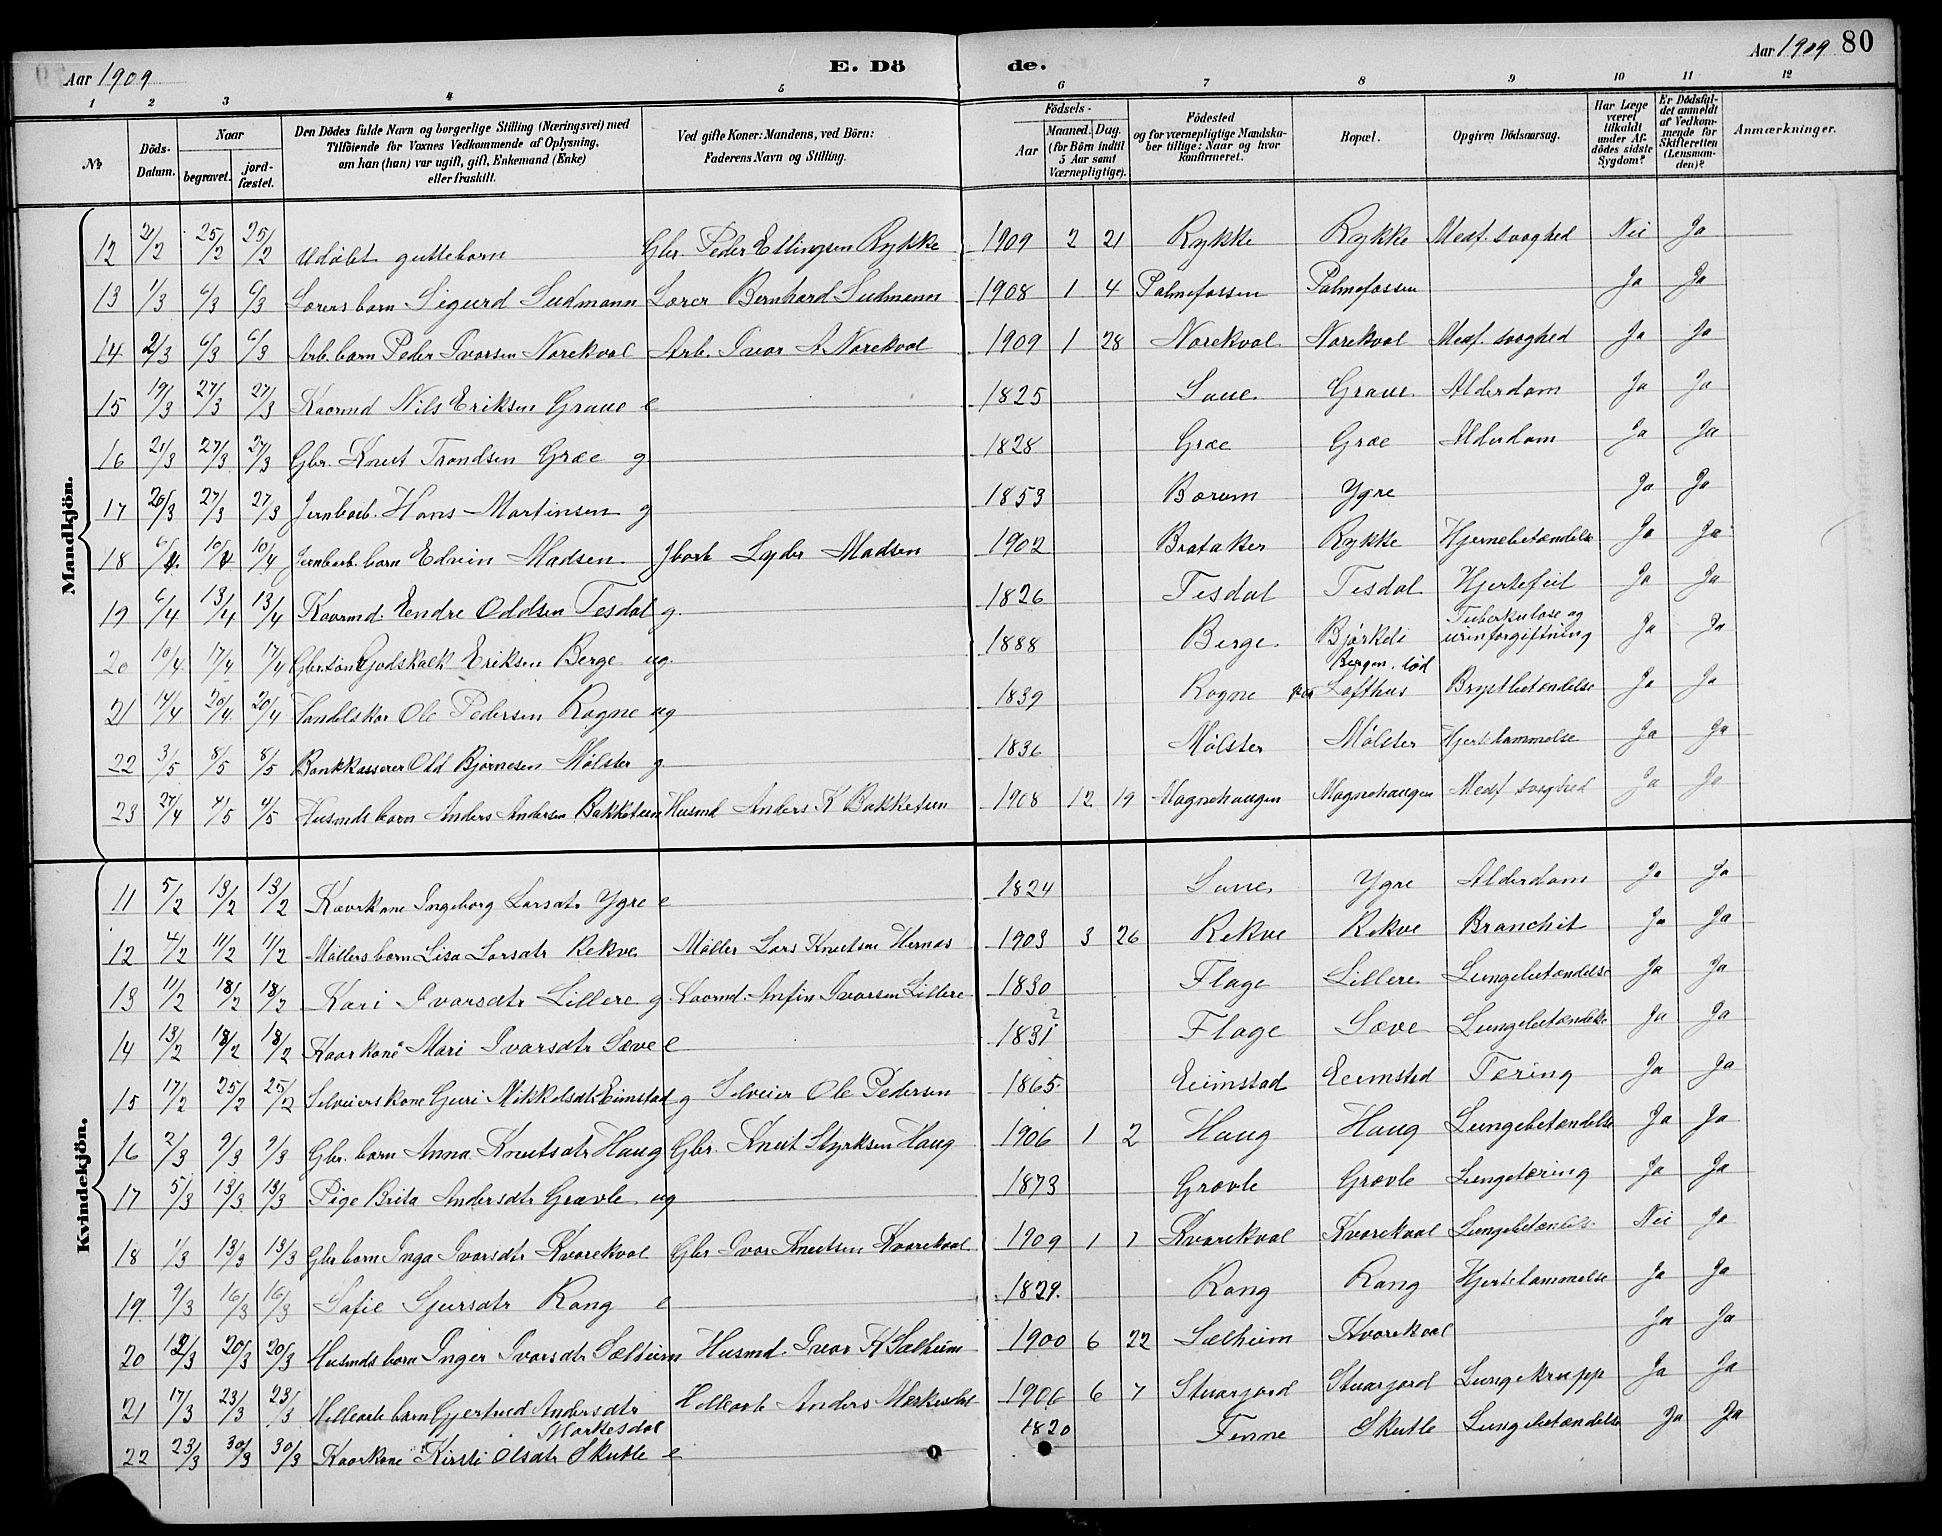 Aar 1909 E. Dö de. Aar 1909 80
1 2 3 4 5 6 7 8 9 10 11 12
№ Döds-Datum. Naar begravet. jord-fæstet. Den Dödes fulde Navn og borgerlige Stilling (Næringsvei) med Tilföiende for Voxnes Vedkommende af Oplysning, om han (hun) var ugift, gift, Enkemand (Enke) eller fraskilt. Ved gifte Koner: Mandens, ved Börn: Faderens Navn og Stilling. Födsels- Aar Maaned. Dag. (for Börn indtil 5 Aar samt Værnepligtige). Födested og for værnepligtige Mandskaber tillige: Naar og hvor konfirmeret. Bopæl. Opgiven Dödsaarsag. Har Læge været tilkaldt under Afdödes sidste Sygdom? Er Dödsfaldet anmeldt af Vedkommende for Skifteretten (Lensmanden)? Anmærkninger.
Mandkjön.
12 21/2 25/2 25/2 Udøbt guttebarn Gbr. Peder Ellingsen Rykke 1909 2 21 Rykke Rykke Medf. svaghed Nei Ja
13 1/3 6/3 6/3 Lærers barn Sigurd Sudmann Lærer Bernhard Sudmann 1908 1 4 Palmefossen Palmefossen Ja Ja
14 2/3 6/3 6/3 Arb. barn Peder Ivarsen Norekval Arb. Ivar A. Norekval 1909 1 28 Norekval Norekval Medf. svaghed Ja Ja
15 19/3 27/3 27/3 Kaarmd Nils Eriksen Graue e 1825 Saue Graue Alderdom Ja Ja
16 21/3 27/3 27/3 Gbr. Knut Trondsen Græe g 1828 Græe Græe Alderdom Ja Ja
17 20/3 27/3 27/3 Jernbarb. Hans Martinsen g 1853 Bærum Ygre Ja Ja
18 6/4 10/4 10/4 Jernbarb. barn Edvin Madsen Jbarb Lyder Madsen 1902 Brataker Rykke Hjernebetændelse Ja Ja
19 6/4 13/4 13/4 Kaarmd. Eendre Oddsen Tesdal g. 1826 Tesdal Tesdal Hjertefeil Ja Ja
20 10/4 17/4 17/4 Gbr.søn Godskalk Eriksen Berge ug. 1888 Berge Bjørkeli Tuberkulose og urinforgiftning Ja Ja
21 14/4 20/4 20/4 Handelskar Ole Pedersen Rogne ug 1839 Rogne Bergen. død Lofthus Brystbetændelse Ja Ja
22 3/5 8/5 8/5 Bankkasserer Odd Bjørnesen Mølster g 1836 Mølster Mølster Hjertelammelse Ja Ja
23 27/4 4/5 4/5 Husmds barn Anders Andersen Bakketun Husmd Anders K Bakketun 1908 12 19 Magnehaugen Magnehaugen Medf svaghed Ja Ja
Kvindekjön.
11 5/2 13/2 13/2 Kaarkone Ingeborg Larsdtr Ygre e 1824 Saue Ygre Alderdom Ja Ja
12 4/2 11/2 11/2 Møllers barn Lisa Larsdtr Rekve Møller Lars Knutsen Hernæs 1903 3 26 Rekve Rekve Bronchit Ja Ja
13 11/2 18/2 18/2 Kari Ivarsdtr Lillere g. Kaarmd. Anfin Ivarsen Lillere 1830 Flage Lillere Lungebetændelse Ja Ja
14 13/2 18/2 18/2 Kaarkone Mari Ivarsdtr Sæve e 1831 ? Flage Sæve Lungebetændelse Ja Ja
15 17/2 25/2 25/2 Selveierskone Guri Mikkelsdtr Eimstad g Selveier Ole Pedersen 1865. Eeimstad Eeimstad Tæring Ja Ja
16 2/3 9/3 9/3 Gbr. barn Anna Knutsdtr Haug Gbr. Knut Styrksen Haug 1906 1 2 Haug Haug Lungebetændelse Ja Ja
17 5/3 13/3 13/3 Pige Brita Andersdtr Gravle ug 1873 Gravle Gravle Lungetæring Ja Ja
18 1/3 13/3 13/3 Gbr barn Inga Ivarsdtr Kvarekval Gbr Ivar Knutsen Kvarekval 1909 1 1 Kvarekval Kvarekval Lungebetændelse Nei Ja
19 9/3 16/3 16/3 Sofie Sjursdtr Rong e 1829. Rong Rong Hjertelammelse Ja Ja
20 12/3 20/3 20/3 Husmds barn Inger Ivarsdtr Sælheim Husmd. Ivar K Sælheim 1900 6 22 Sælheim Kvarekval Ja Ja
21 17/3 23/3 23/3 Hellearb barn Gjertrud Andersdtr Mørkesdal Hellearb Anders Mørkesdal 1906 6 7 Stuarjord Stuarjord Lungekrupp Ja Ja
22 23/3 30/3 30/3 Kaarkone Kirsti Olsdtr Skutle e 1820 Finne Skutle Lungebetændelse Ja Ja